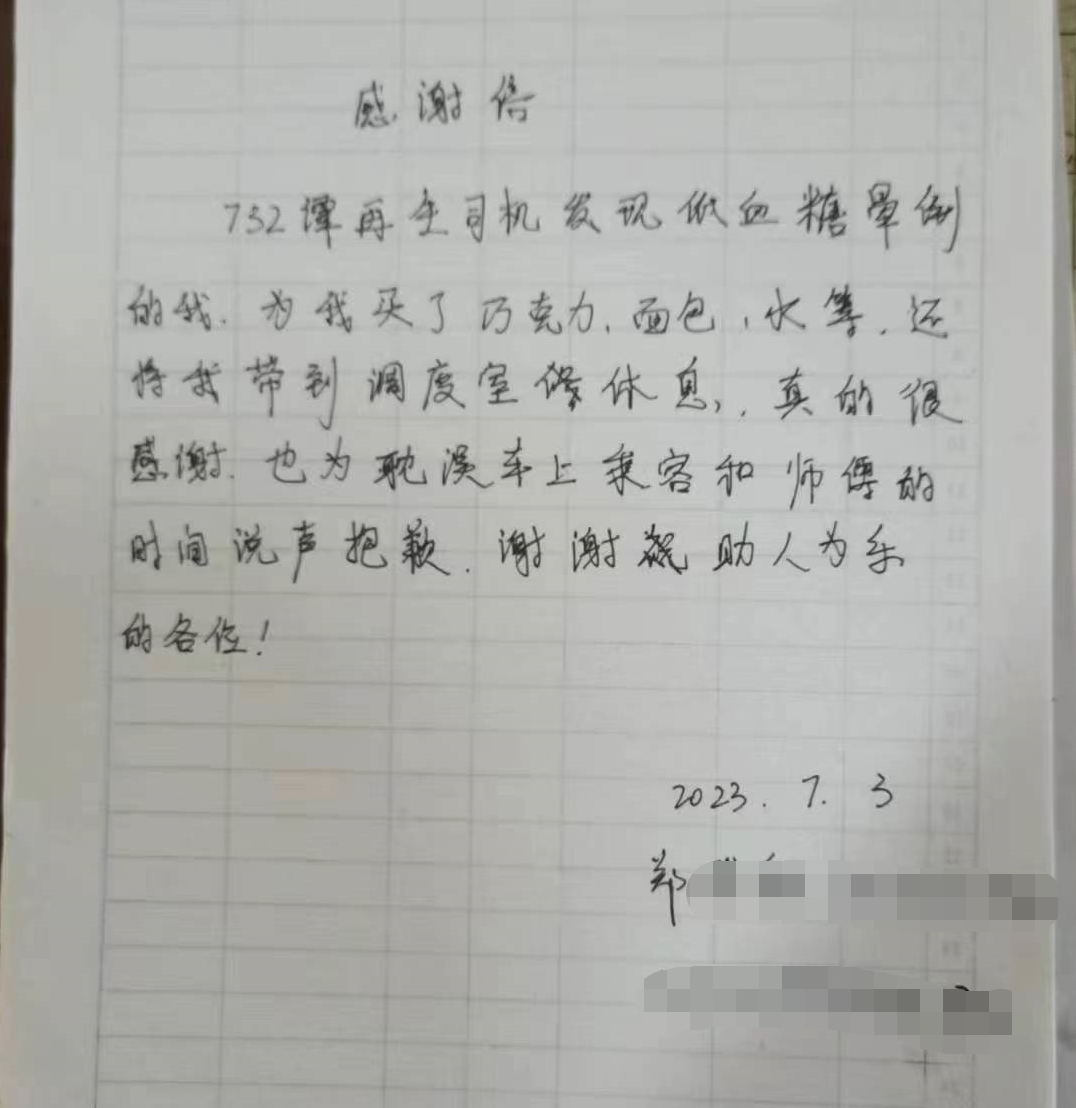 感谢信
732谭再生司机发现低血糖晕倒
的我.为我买了巧克力、面包、水等.还
将我带到调度室休息,真的很
感谢.也为耽误车上乘客和师傅的
时间说声抱歉.谢谢助人为乐
的各位!
2023.7.3
郑